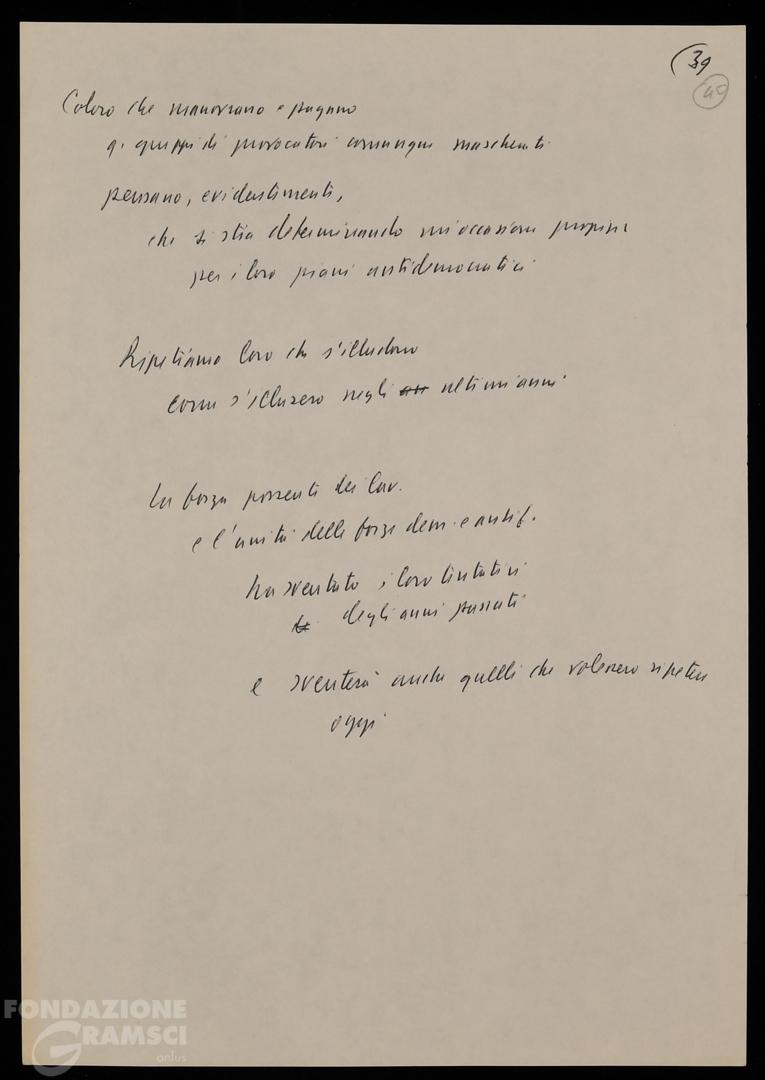 (39
40
Coloro che manovrano e pagano
q. gruppi di provocatori comunque mascherati
pensano, evidentemente,
che si stia determinando un'occasione propizia
per i loro piani antidemocratici
Ripetiamo loro che s'illudono
come s'illusero negli an ultimi anni
La forza possente dei lav.
e l'unità delle forze dem. e antif.
ha sventato i loro tentativi
degli anni passati
e sventerà anche quelli che volessero ripetere
oggi
FONDAZIONE
GRAMSCI
onlus